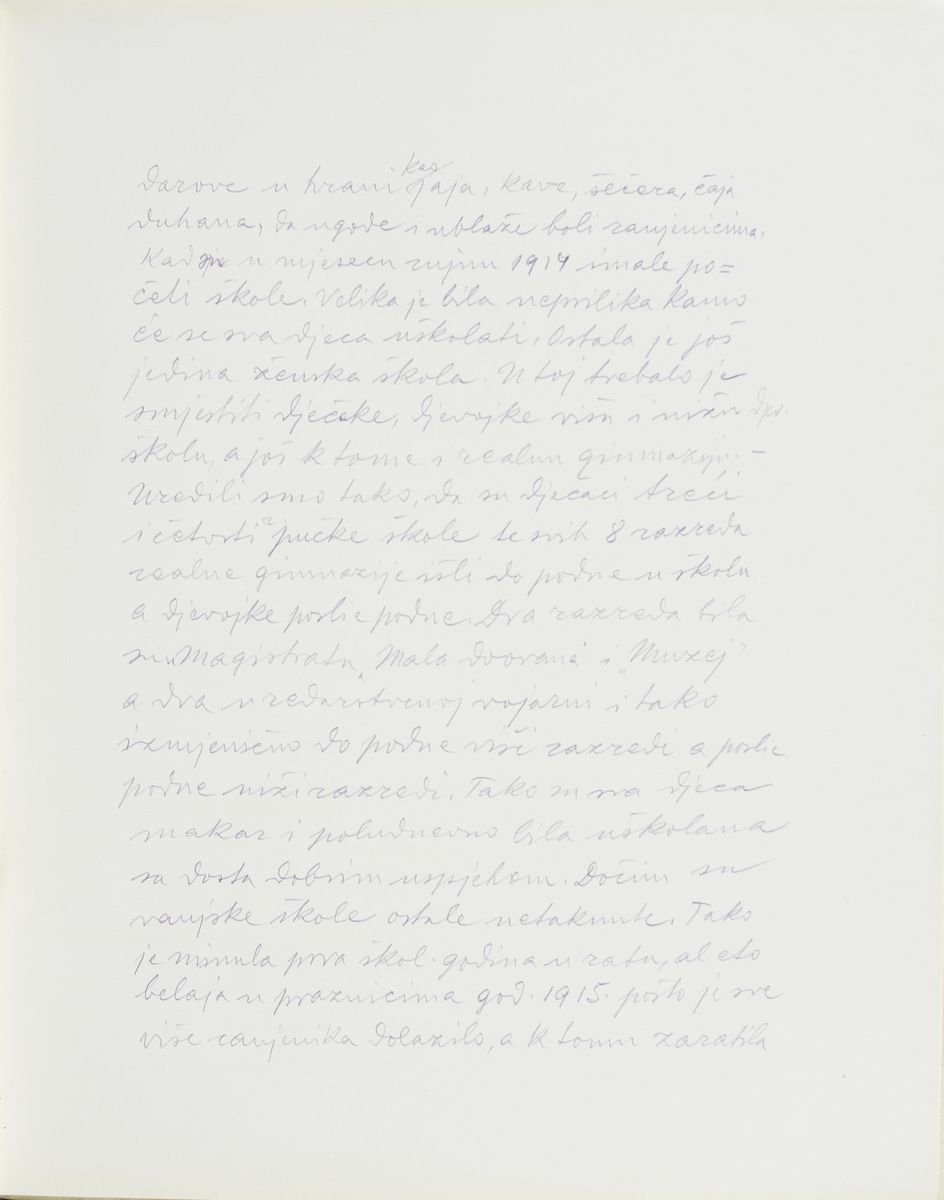 darove u hrani kao jaja, kave, šećera, čaja
duhana, da ugode i ublaže boli ranjenicima.
Kad su u mjesecu rujnu 1914 imale po=
četi škole. Velika je bila neprilika kamo
će se sva djeca uškolati. Ostala je još
jedina ženska škola. U toj trebalo je
smjestiti dječake, djevojke višu i nižu djev.
školu, a još k tome i realnu gimnaziju. –
Uredili smo tako, da su dječaci treći
i četvrti r pučke škole te svih 8 razreda
realne gimnazije išli do podne u školu
a djevojke poslie podne. Dva razreda bila
su u Magistratu, "Mala dvorana i "Muzej"
a dva u redarstvenoj vojarni i tako
izmjenično do podne viši razredi a poslie
podne niži razredi. Tako su sva djeca
makar i poludnevno bila uškolana
sa dosta dobrim uspjehom. Dočim su
vanjske škole ostale netaknute. Tako
je minula prva škol. godina u ratu, al eto
belaja u praznicima god. 1915. pošto je sve
više ranjenika dolazilo, a k tomu zaratila